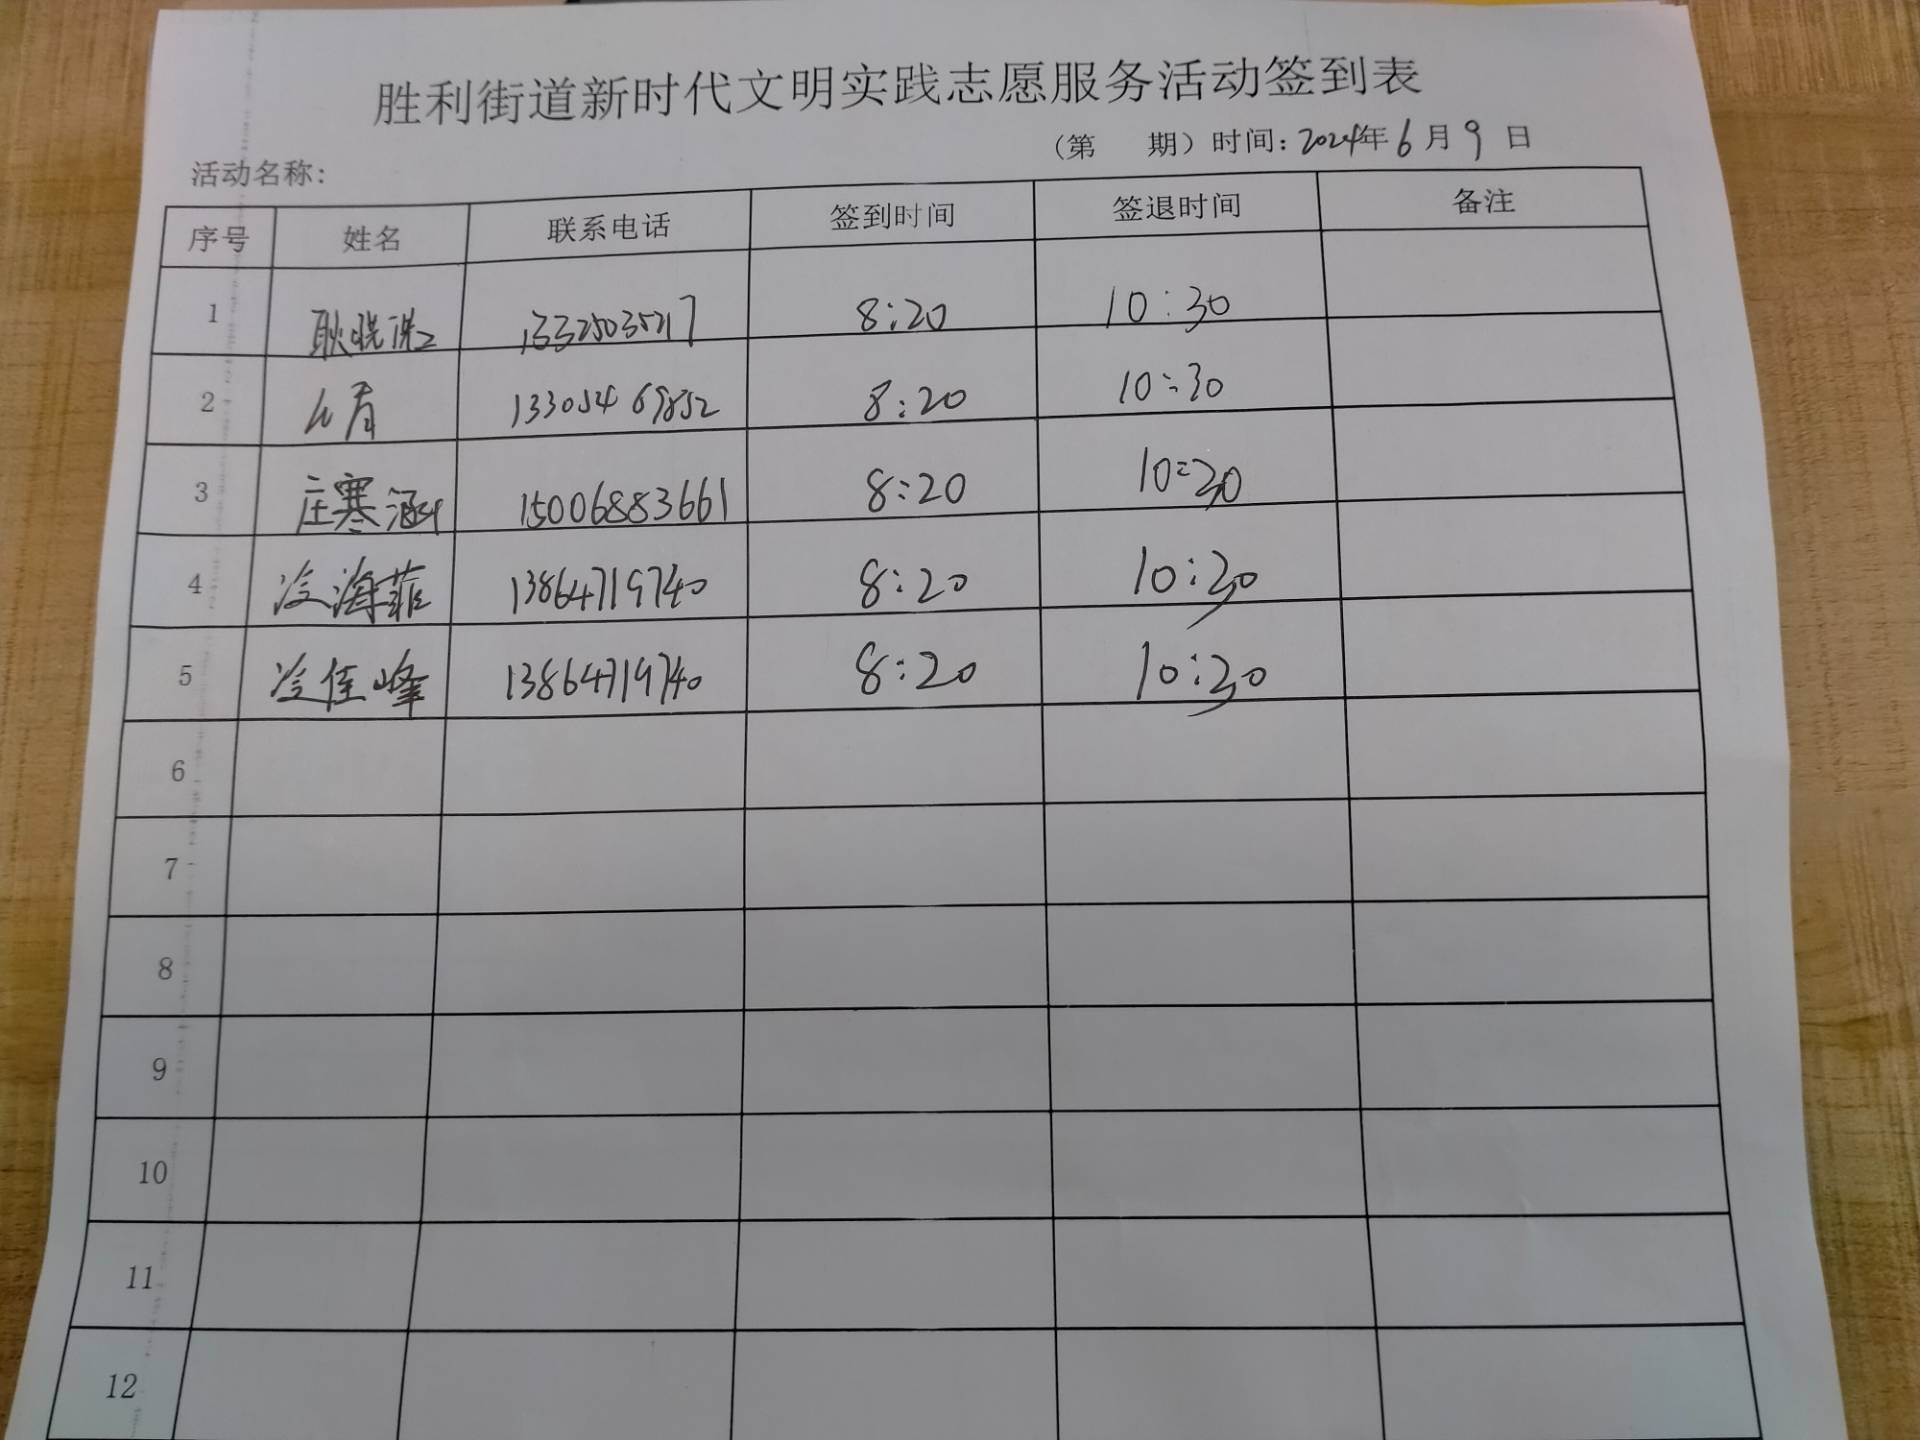 胜利街道新时代文明实践志愿服务活动签到表
（第 期）时间：2024年6月9日
活动名称：
序号 姓名 联系电话 签到时间 签退时间 备注
1 耿晓洪 13325035217 8:20 10:30
2 13305469852 8:20 10:30
3 庄寒涵 15006883661 8:20 10:30
4 冷海菲 13864719740 8:20 10:30
5 冷佳峰 13864719740 8:20 10:30
6
7
8
9
10
11
12